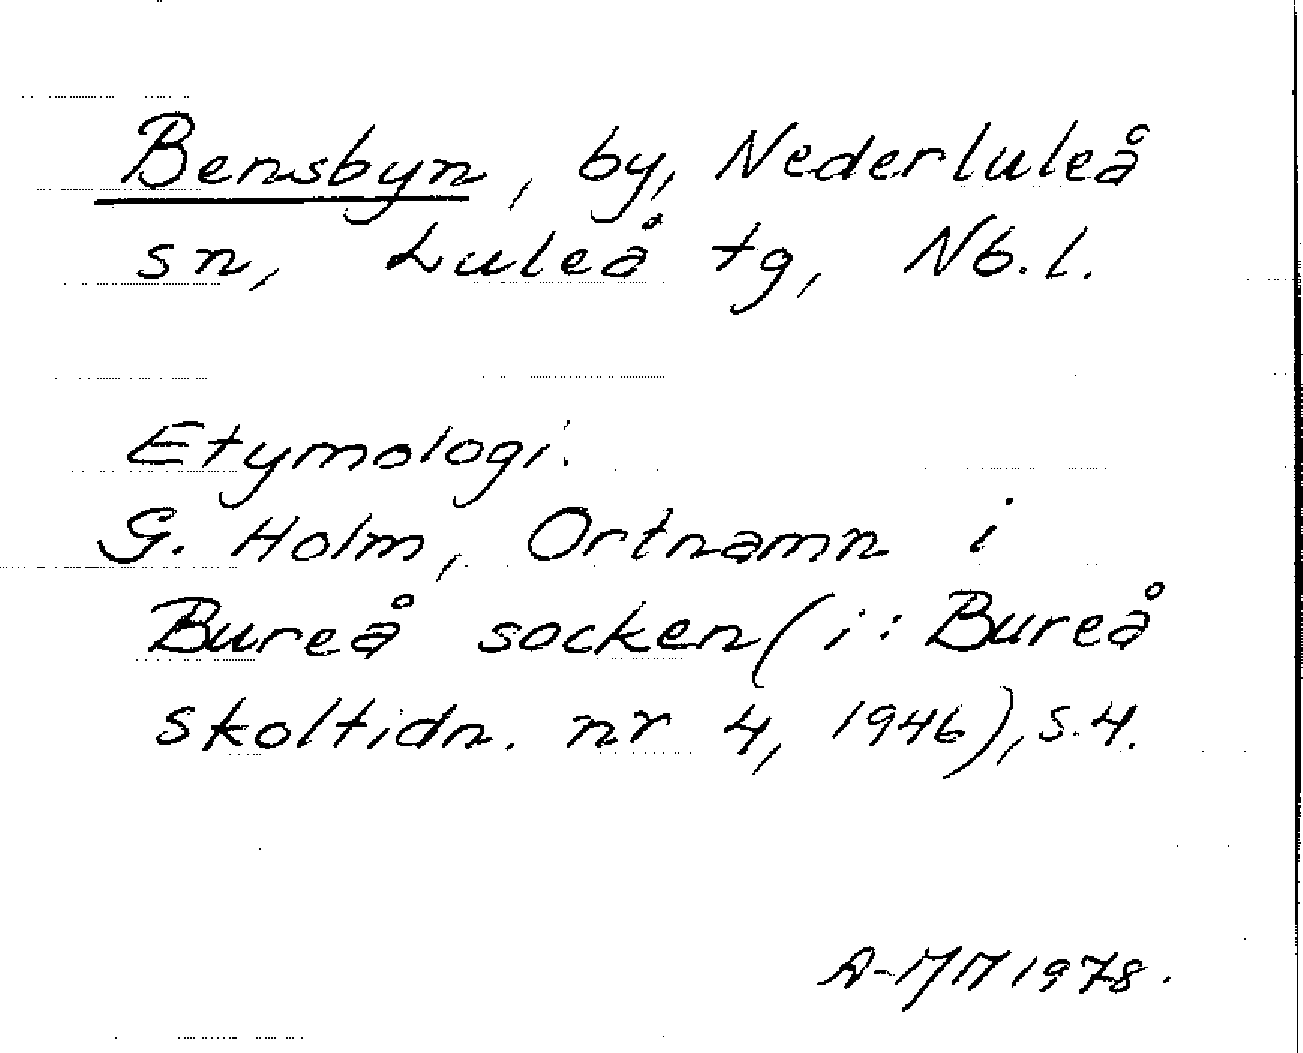 Bensbyn, by, Nederluleå
sn, Luleå tg, Nb.l.
Etymologi:
G. Holm, Ortnamn i
Bureå socken (i: Bureå
skoltidn. nr 4, 1946), s.4.
1978.